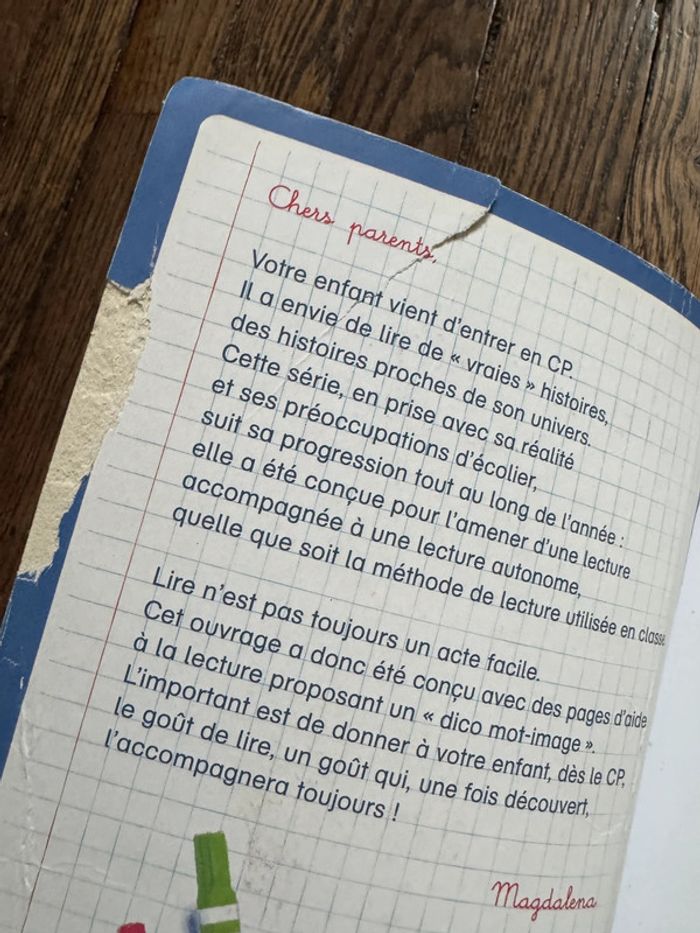 Chers parents,
Votre enfant vient d'entrer en CP.
Il a envie de lire de « vraies » histoires,
des histoires proches de son univers.
Cette série, en prise avec sa réalité
et ses préoccupations d'écolier,
suit sa progression tout au long de l'année :
elle a été conçue pour l'amener d'une lecture
accompagnée à une lecture autonome,
quelle que soit la méthode de lecture utilisée en classe.
Lire n'est pas toujours un acte facile.
Cet ouvrage a donc été conçu avec des pages d'aide
à la lecture proposant un « dico mot-image ».
L'important est de donner à votre enfant, dès le CP,
le goût de lire, un goût qui, une fois découvert,
l'accompagnera toujours !
Magdalena